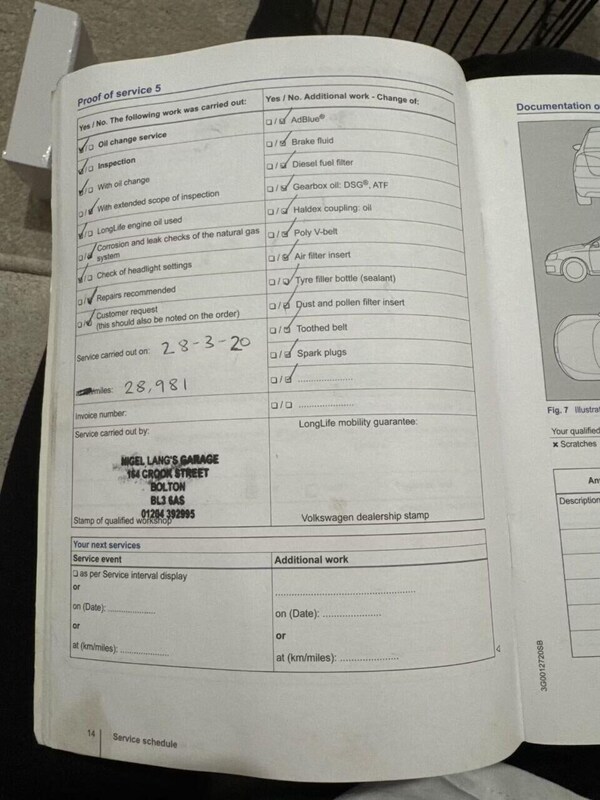 Proof of service 5
Yes / No. The following work was carried out:
Oil change service
Inspection
With oil change
With extended scope of inspection
LongLife engine oil used
Corrosion and leak checks of the natural gas
system
Check of headlight settings
Repairs recommended
Customer request
(this should also be noted on the order)
Service carried out on: 28-3-20
miles: 28,981
Invoice number:
Service carried out by:
NIGEL LANG'S GARAGE
164 CROOK STREET
BOLTON
BL3 6AS
01204 392995
Stamp of qualified workshop
Yes / No. Additional work - Change of:
AdBlue®
Brake fluid
Diesel fuel filter
Gearbox oil: DSG®, ATF
Haldex coupling: oil
Poly V-belt
Air filter insert
Tyre filler bottle (sealant)
Dust and pollen filter insert
Toothed belt
Spark plugs
LongLife mobility guarantee:
Volkswagen dealership stamp
Your next services
Service event
as per Service interval display
or
on (Date):
or
at (km/miles):
Additional work
on (Date):
or
at (km/miles):
14 Service schedule
Documentation o
Fig. 7 Illustrat
Your qualified
× Scratches
An
Description
3G0012720SB